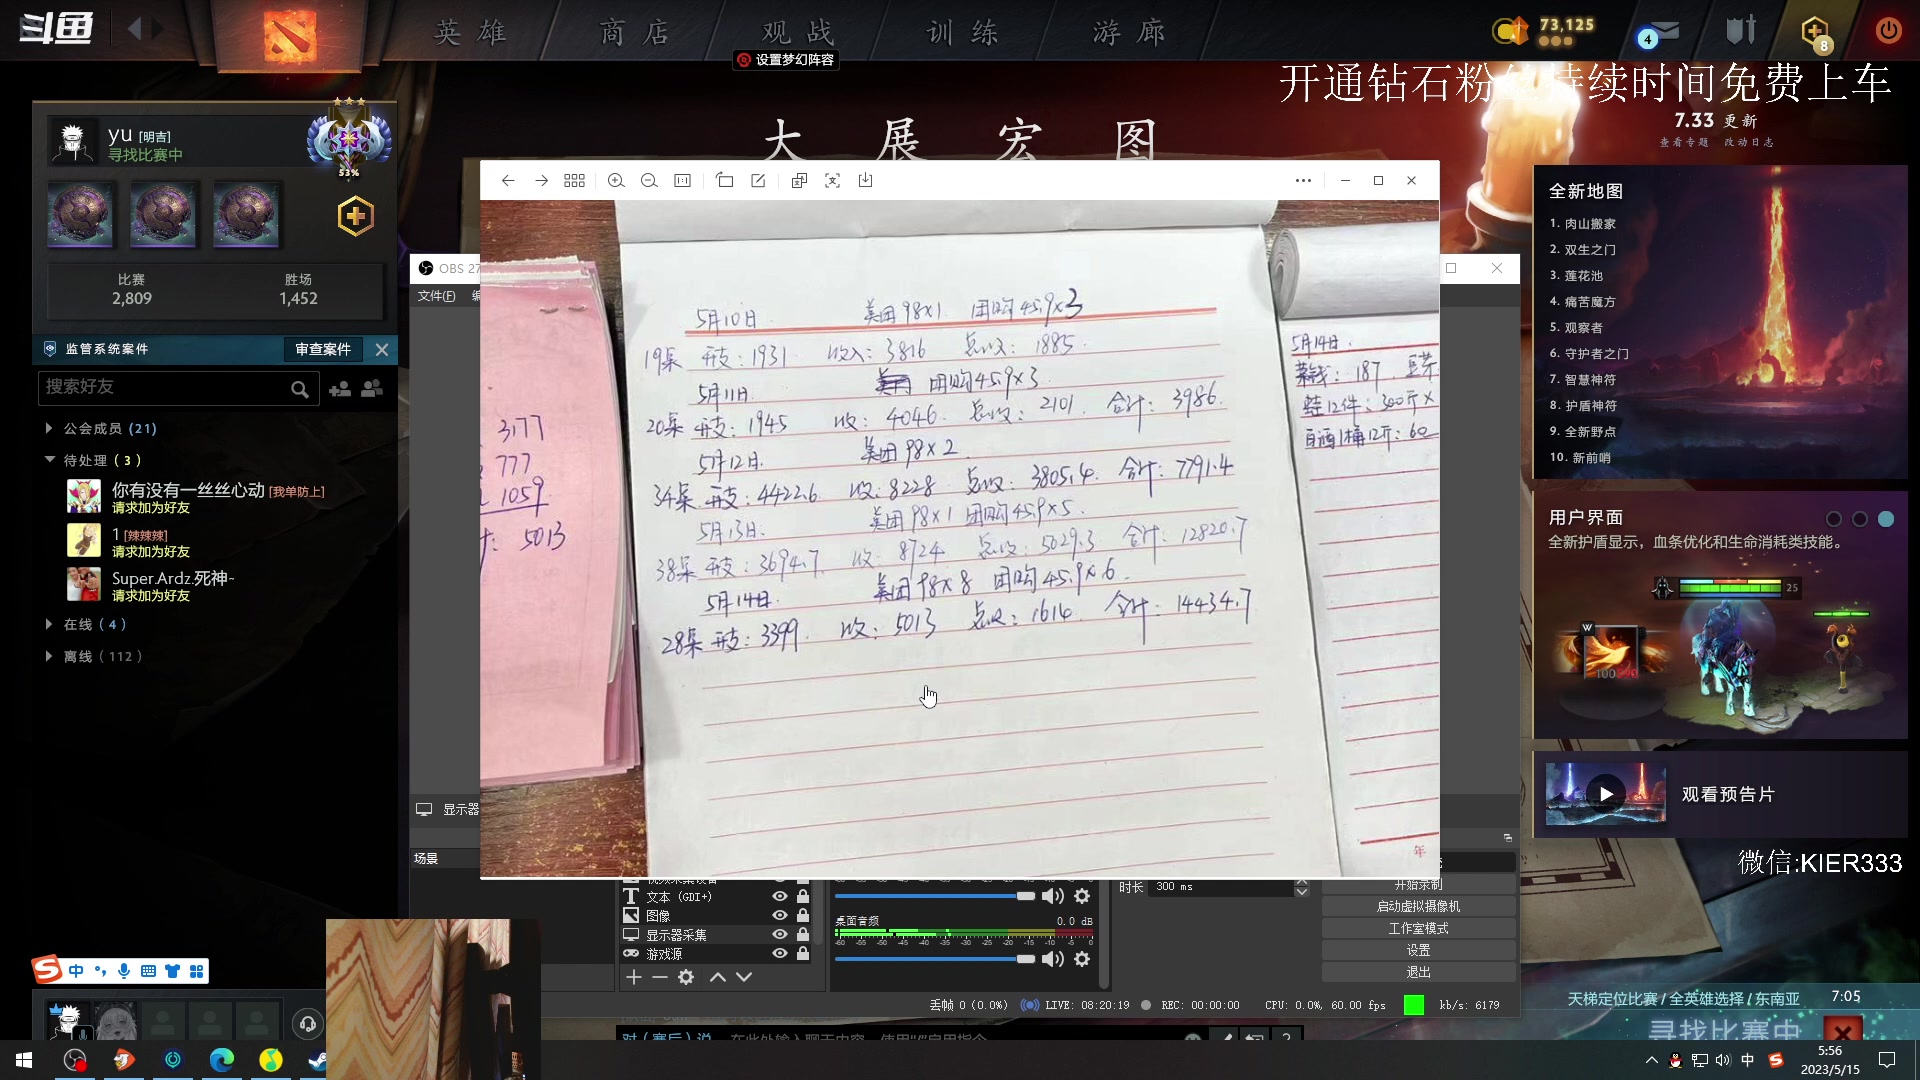 斗鱼
英雄
商店
观战
训练
游廊
73,125
4
8
设置梦幻阵容
开通钻石粉
持续时间免费上车
7.33 更新
查看专题 改动日志
大展宏图
yu [明吉]
寻找比赛中
53%
比赛
2,809
胜场
1,452
监管系统案件
审查案件
搜索好友
公会成员 (21)
待处理 (3)
你有没有一丝丝心动 [我单防上]
请求加为好友
1 [辣辣辣]
请求加为好友
Super.Ardz.死神~
请求加为好友
在线 (4)
离线 (112)
OBS 27
文件(F)
显示器
场景
3177
777
1059
5013
5月10日 美团98×1 团购45.9×3
19桌 开支:1931 收入:3816 总收:1885
5月11日 团购45.9×3
20桌 开支:1945 收:4046 总收:2101 合计:3986
5月12日 美团98×2
34桌 开支:4422.6 收:8228 总收:3805.4 合计:7791.4
5月13日 美团98×1 团购45.9×5
38桌 开支:3694.7 收:8724 总收:5029.3 合计:12820.7
5月14日 美团98×8 团购45.9×6
28桌 开支:3399 收:5013 总收:1614 合计:14434.7
5月14日
菜钱:187 豆芽
12件:300斤×
白酒1桶12斤:60
年
全新地图
1. 肉山搬家
2. 双生之门
3. 莲花池
4. 痛苦魔方
5. 观察者
6. 守护者之门
7. 智慧神符
8. 护盾神符
9. 全新野点
10. 新前哨
用户界面
全新护盾显示，血条优化和生命消耗类技能。
25
W
观看预告片
微信:KIER333
文本 (GDI+)
图像
显示器采集
游戏源
桌面音频
0.0 dB
-60 -55 -50 -45 -40 -35 -30 -25 -20 -15 -10 -5 0
时长 300 ms
开始录制
启动虚拟摄像机
工作室模式
设置
退出
丢帧 0 (0.0%)
LIVE: 08:20:19
REC: 00:00:00
CPU: 0.0%, 60.00 fps
kb/s: 6179
中
天梯定位比赛 / 全英雄选择 / 东南亚
7:05
寻找比赛中
中
5:56
2023/5/15